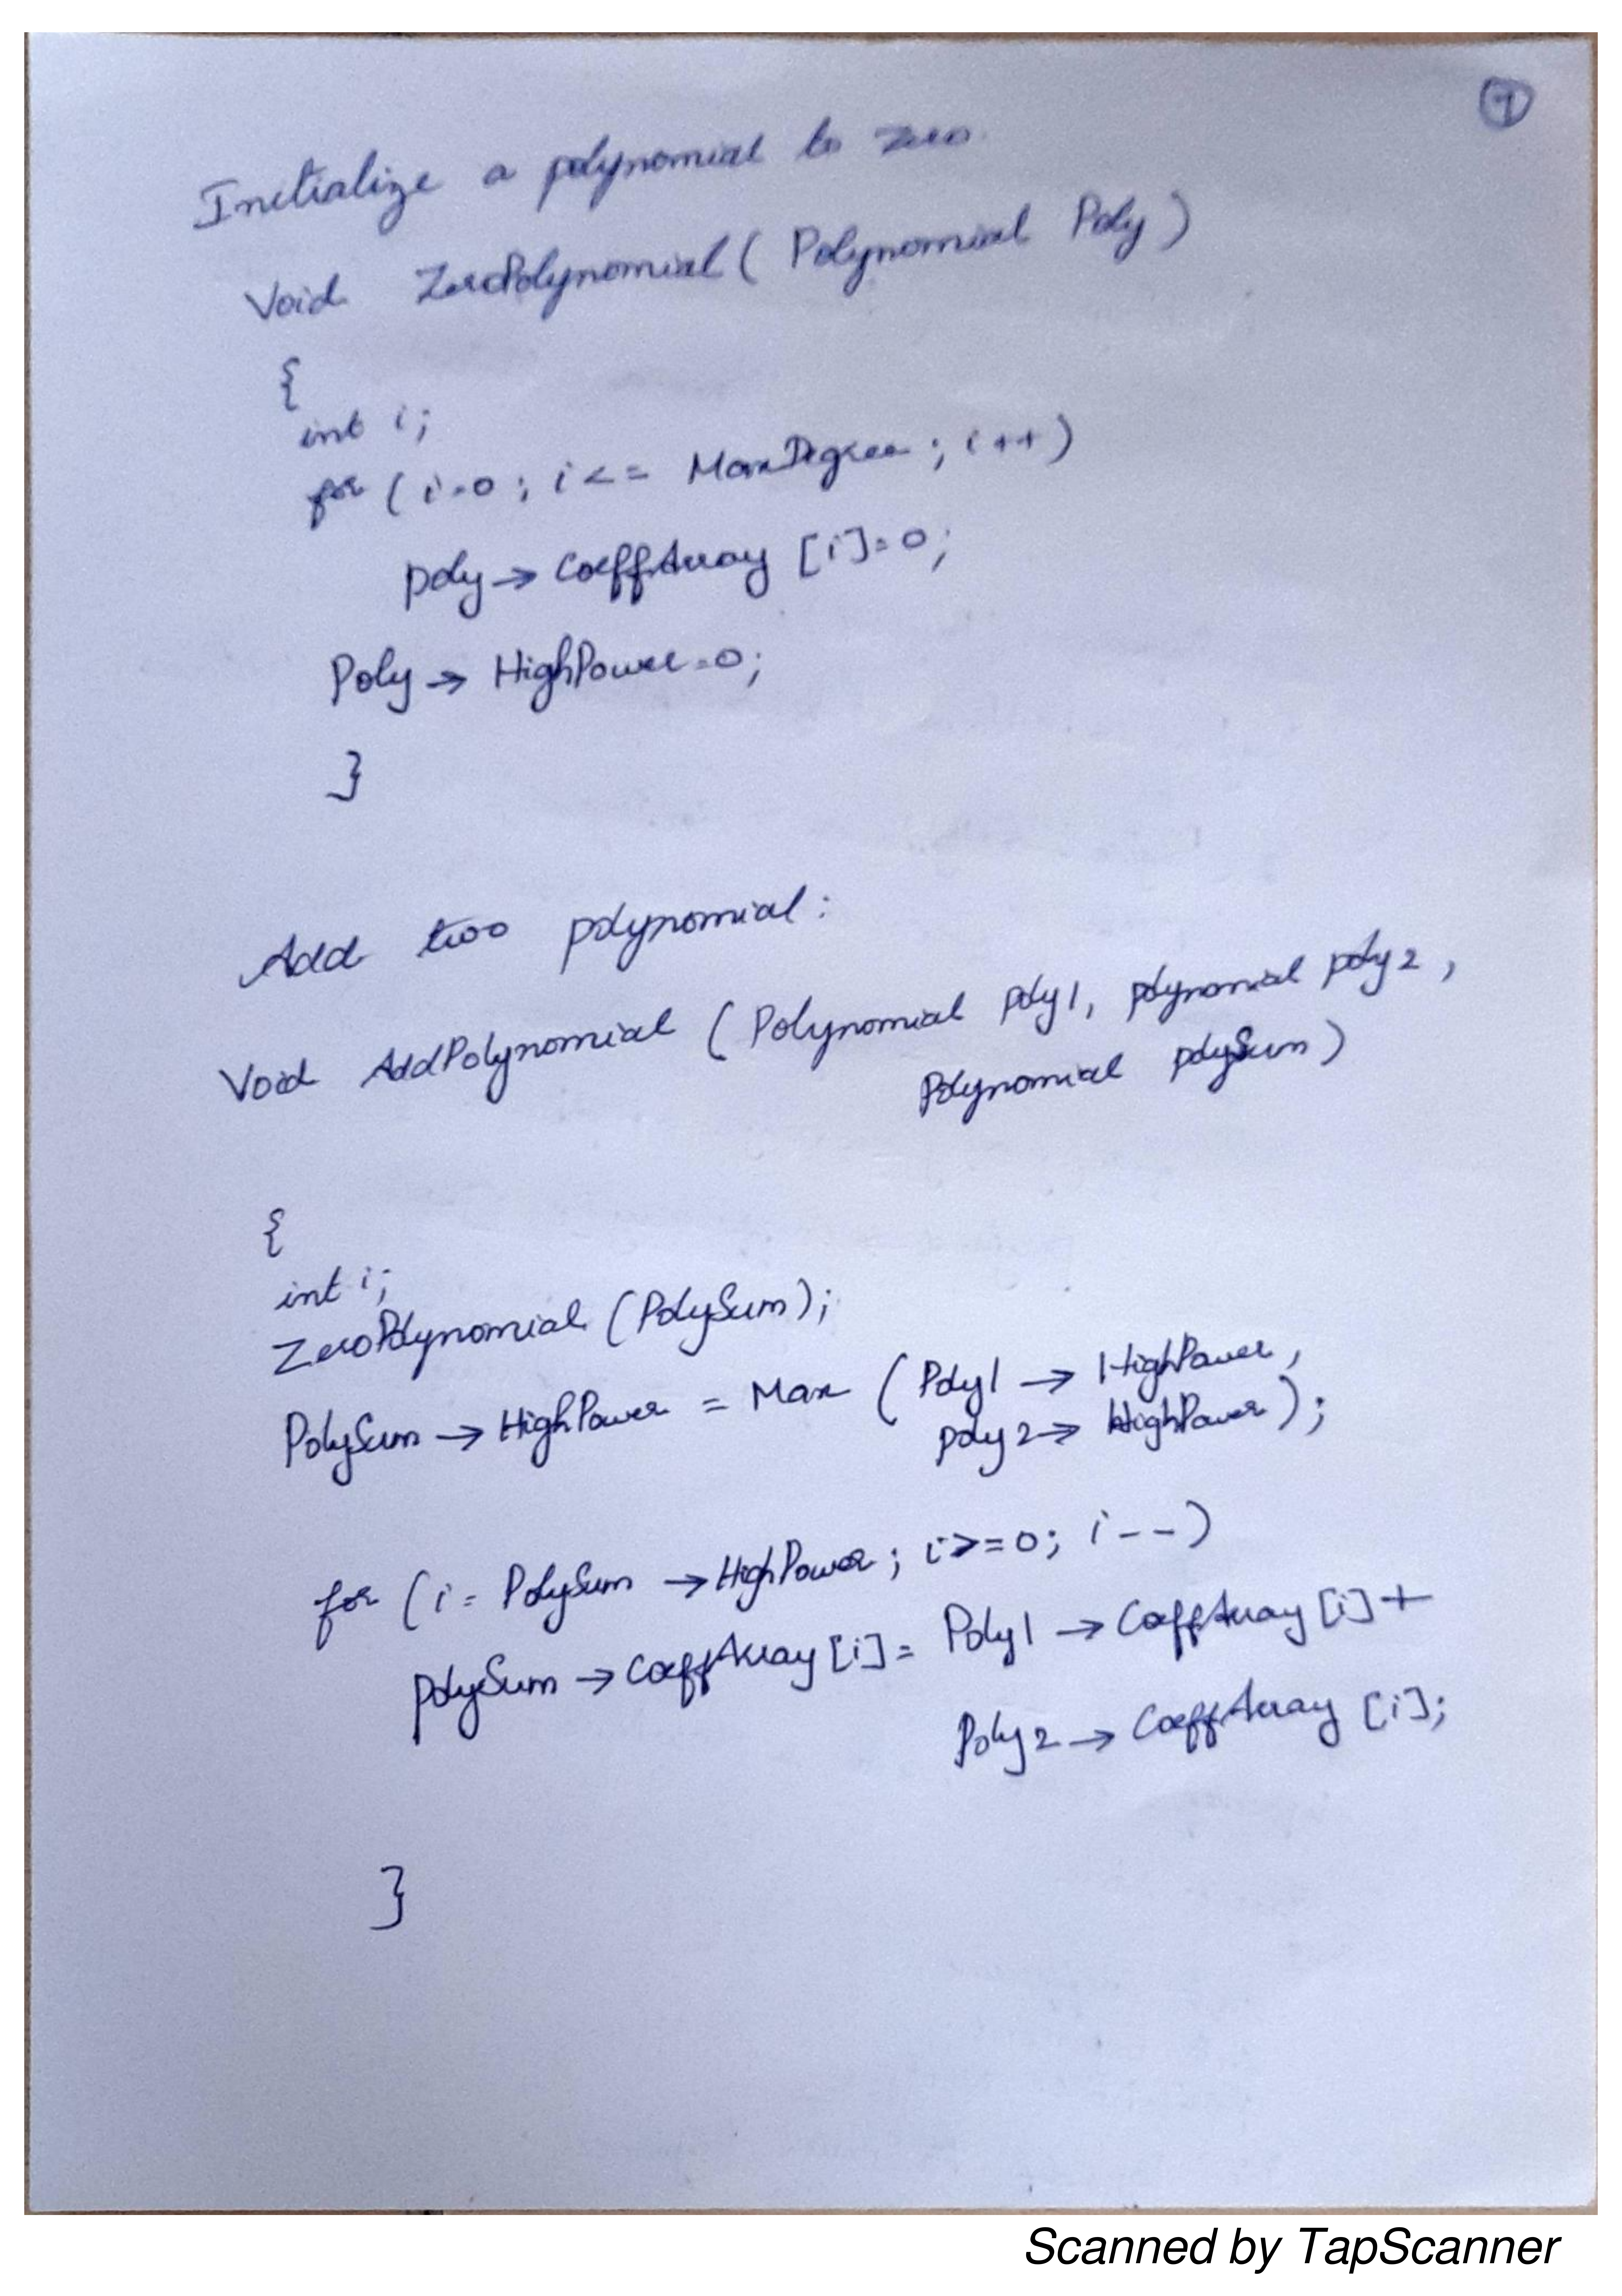 7
Initialize a polynomial to zero.
Void ZeroPolynomial ( Polynomial Poly )
{
int i;
for ( i=0 ; i <= MaxDegree ; i++ )
poly → CoeffArray [i]=0;
Poly → HighPower=0;
}
Add two polynomial:
Void AddPolynomial ( Polynomial poly1, polynomial poly2 ,
Polynomial polySum )
{
int i;
ZeroPolynomial (PolySum);
PolySum → HighPower = Max ( Poly1 → HighPower ,
poly2 → HighPower );
for ( i = PolySum → HighPower ; i >= 0 ; i -- )
polySum → CoeffArray [i] = Poly1 → CoeffArray [i] +
Poly2 → CoeffArray [i];
}
Scanned by TapScanner